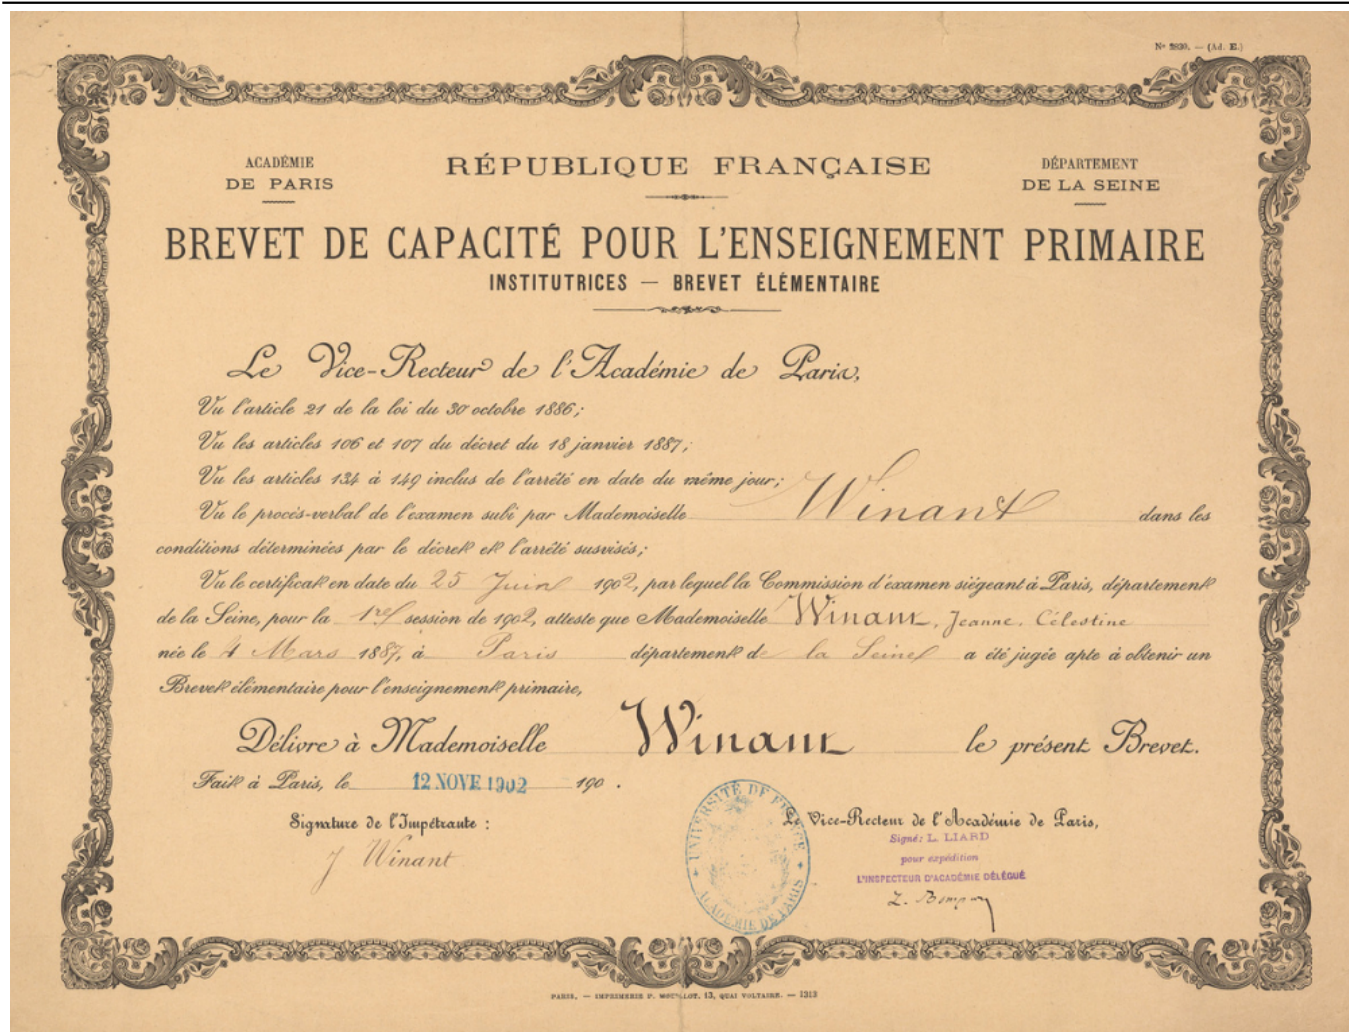 Nº 2830. — (Ad. E.)
ACADÉMIE
DE PARIS
RÉPUBLIQUE FRANÇAISE
DÉPARTEMENT
DE LA SEINE
BREVET DE CAPACITÉ POUR L'ENSEIGNEMENT PRIMAIRE
INSTITUTRICES — BREVET ÉLÉMENTAIRE
Le Vice-Recteur de l'Académie de Paris,
Vu l'article 21 de la loi du 30 octobre 1886;
Vu les articles 106 et 107 du décret du 18 janvier 1887;
Vu les articles 134 à 149 inclus de l'arrêté en date du même jour;
Vu le procès-verbal de l'examen subi par Mademoiselle Winant dans les
conditions déterminées par le décret et l'arrêté susvisés;
Vu le certificat en date du 25 Juin 1902, par lequel la Commission d'examen siégeant à Paris, département
de la Seine, pour la 1re session de 1902, atteste que Mademoiselle Winant, Jeanne, Célestine
née le 4 Mars 1887, à Paris département de la Seine a été jugée apte à obtenir un
Brevet élémentaire pour l'enseignement primaire,
Délivre à Mademoiselle Winant le présent Brevet.
Fait à Paris, le 12 NOVE 1902 190 .
Signature de l'Impétrante :
J Winant
UNIVERSITÉ DE FRANCE
ACADÉMIE DE PARIS
Le Vice-Recteur de l'Académie de Paris,
Signé: L. LIARD
pour expédition
L'INSPECTEUR D'ACADÉMIE DÉLÉGUÉ
PARIS. — IMPRIMERIE P. MOUILLOT, 13, QUAI VOLTAIRE. — 1313